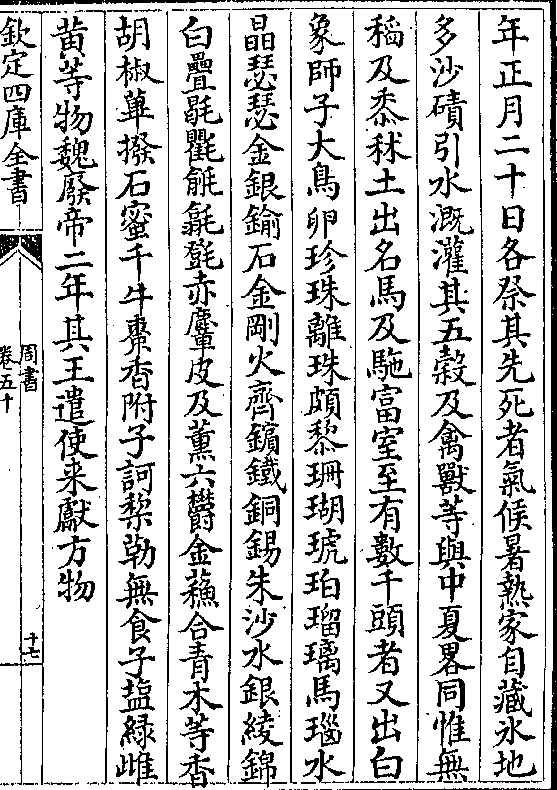 年正月二十日各祭其先死者氣候暑熱家自藏氷地
多沙磧引水溉灌其五穀及禽獸等與中夏畧同惟無
稻及黍秫土出名馬及駞富室至有數千頭者又出白
象師子大鳥卵珍珠離珠頗黎珊瑚琥珀瑠璃馬瑙水
晶瑟瑟金銀鍮石金剛火齊鑌鐵銅錫朱沙水銀綾錦
白疊毼氍毹㲪㲪赤麞皮及薰六欝金蘓合青木等香
胡椒蓽撥石蜜千牛棗香附子訶棃勒無食子塩綠雌
黄等物魏廢帝二年其王遣使来獻方物
欽定四庫全書
周書
卷五十
十七